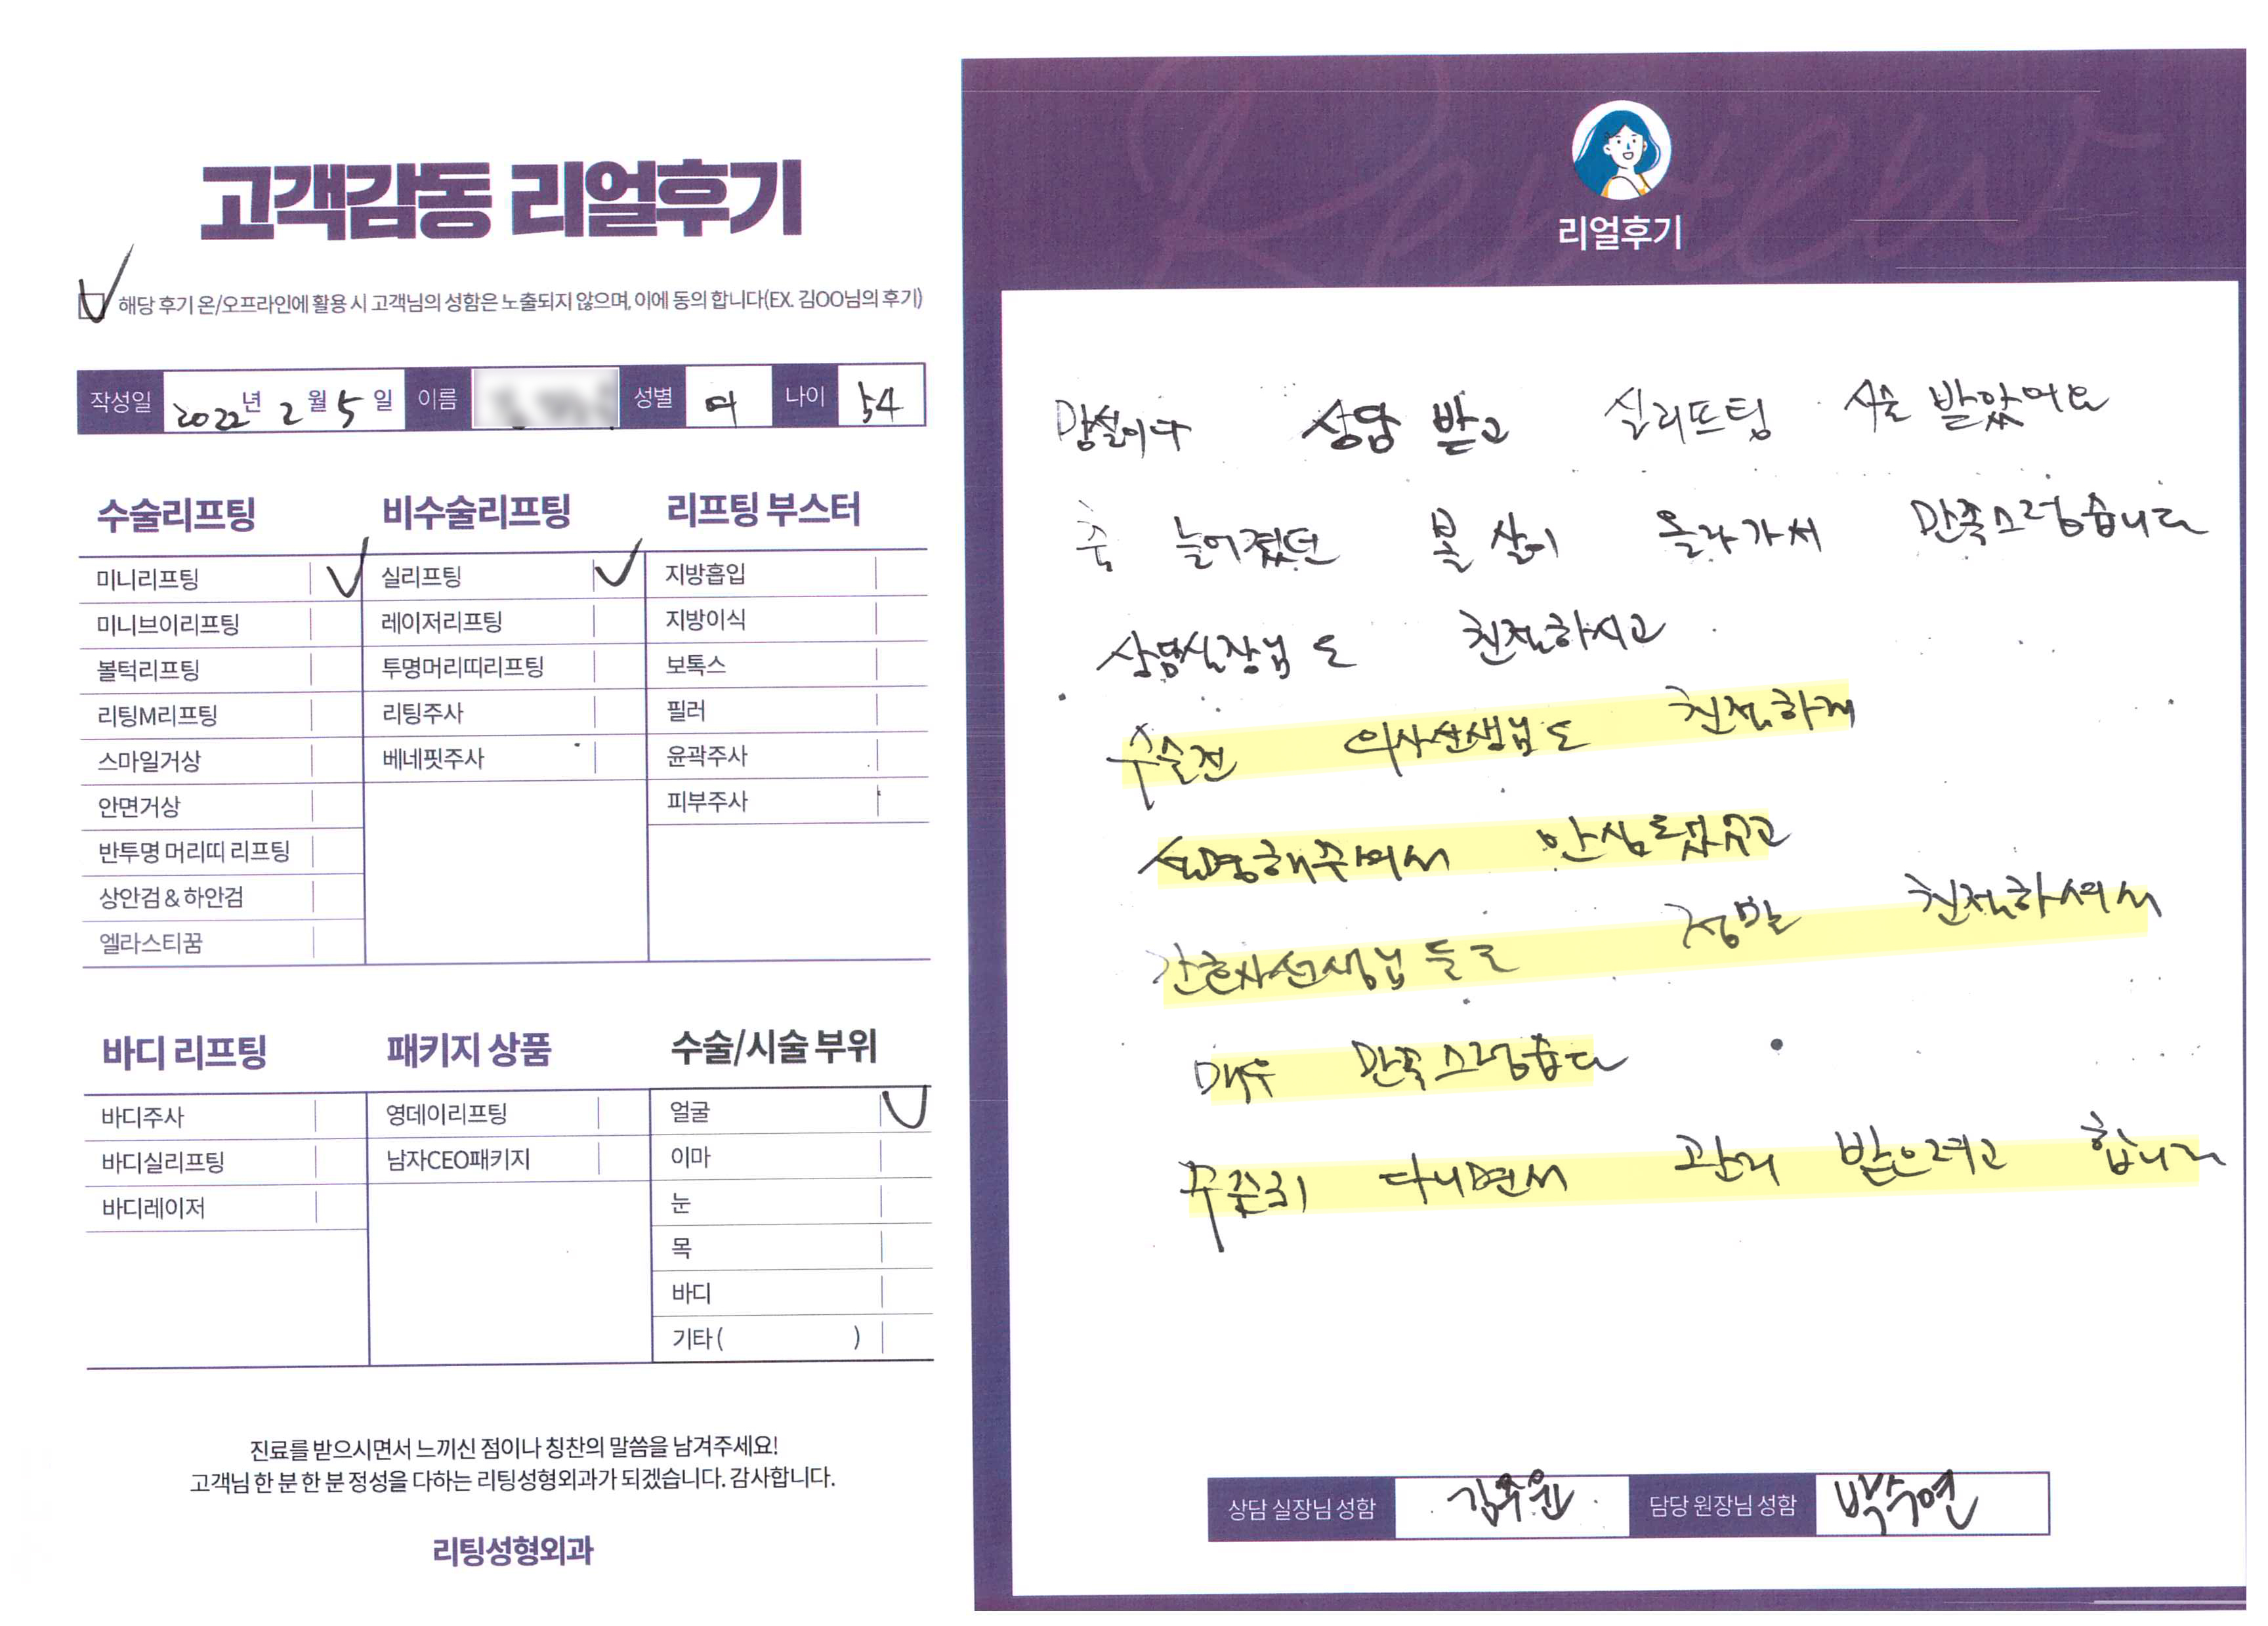 고객감동 리얼후기
해당 후기 온/오프라인에 활용 시 고객님의 성함은 노출되지 않으며, 이에 동의 합니다(EX. 김OO님의 후기)
작성일 2022년 2월 5일 이름 성별 여 나이 54
수술리프팅
미니리프팅
미니브이리프팅
볼턱리프팅
리팅M리프팅
스마일거상
안면거상
반투명 머리띠 리프팅
상안검 & 하안검
엘라스티꿈
비수술리프팅
실리프팅
레이저리프팅
투명머리띠리프팅
리팅주사
베네핏주사
리프팅 부스터
지방흡입
지방이식
보톡스
필러
윤곽주사
피부주사
바디 리프팅
바디주사
바디실리프팅
바디레이저
패키지 상품
영데이리프팅
남자CEO패키지
수술/시술 부위
얼굴
이마
눈
목
바디
기타 ( )
진료를 받으시면서 느끼신 점이나 칭찬의 말씀을 남겨주세요!
고객님 한 분 한 분 정성을 다하는 리팅성형외과가 되겠습니다. 감사합니다.
리팅성형외과
Review
리얼후기
망설이다 상담 받고 실리프팅 시술 받았어요
축 늘어졌던 볼 살이 올라가서 만족스럽습니다
상담실장님도 친절하시고
수술전 의사선생님도 친절하게
설명해주셔서 안심됐었고
간호사선생님들도 정말 친절하셔서
매우 만족스럽습다
꾸준히 다니면서 관리 받으려고 합니다
상담 실장님 성함 담당 원장님 성함 박수연